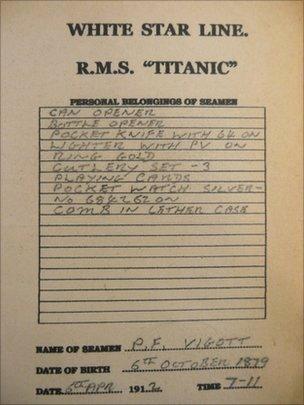 WHITE STAR LINE.
R.M.S. "TITANIC"
PERSONAL BELONGINGS OF SEAMEN
CAN OPENER
BOTTLE OPENER
POCKET KNIFE WITH GK ON
LIGHTER WITH PV ON
RING GOLD
CUTLERY SET -3
PLAYING CARDS
POCKET WATCH SILVER-
No 684262 ON
COMB IN LETHER CASE
NAME OF SEAMEN P.F. VIGOTT
DATE OF BIRTH 6TH OCTOBER 1879
DATE 6TH APR 1912. TIME 7-11